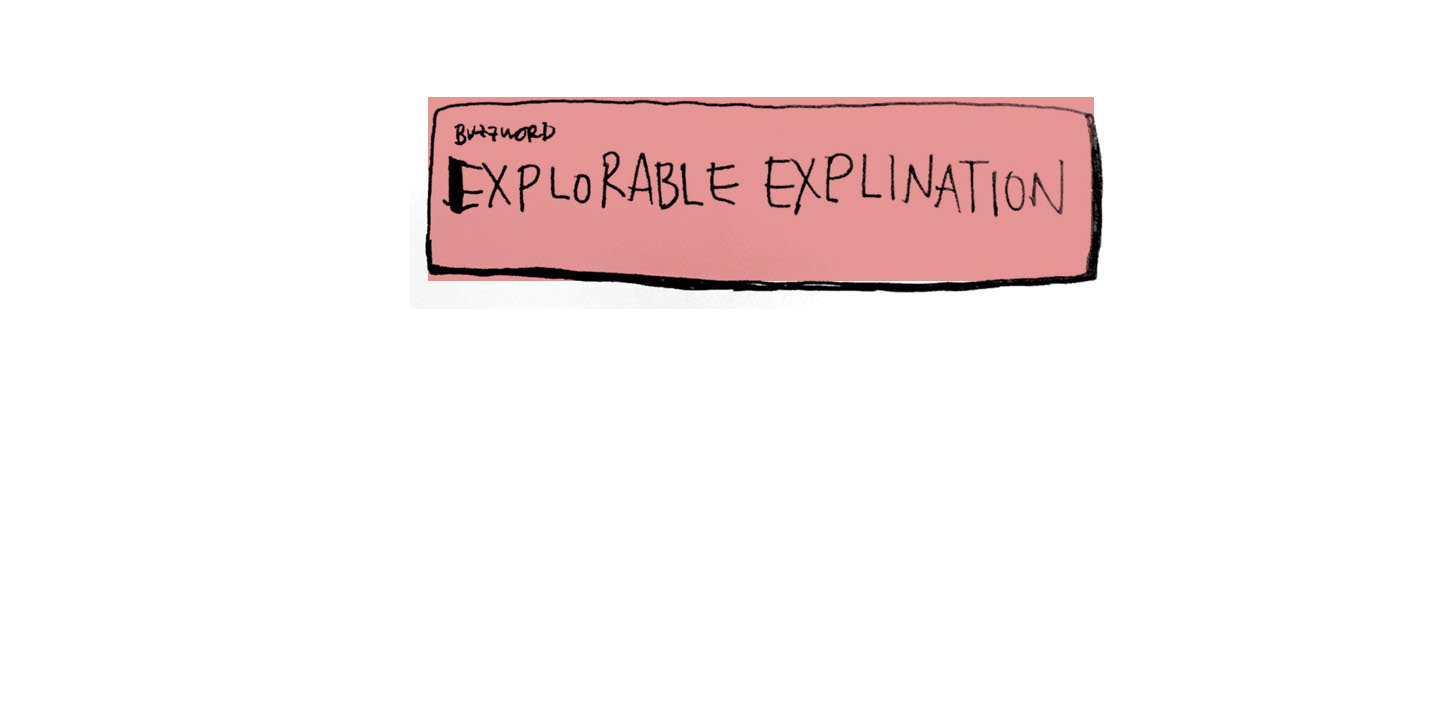 BUZZWORD
EXPLORABLE EXPLINATION